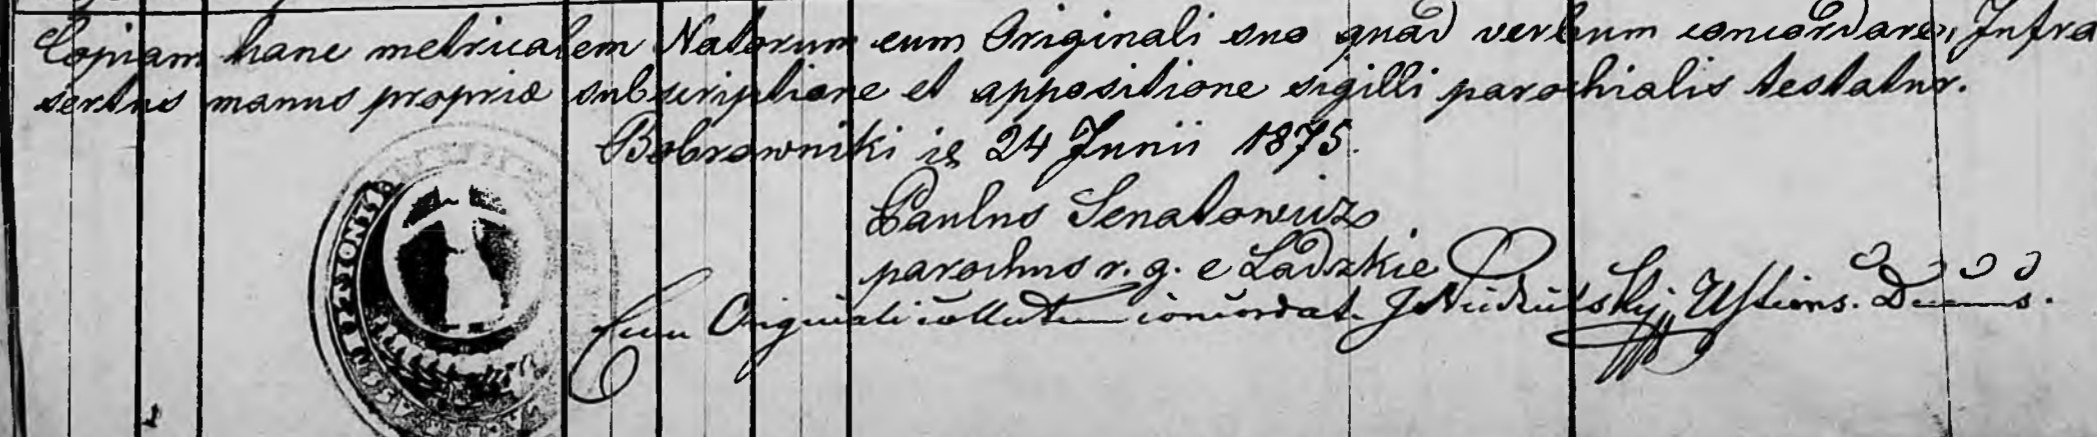 Copiam hanc metricalem Natorum cum Originali suo quad verbum concordare, Infra
sertus manus propriæ subscriptione et appositione sigilli parochialis testatur.
Bobrowniki is 24 Junii 1875.
Paulus Senatowicz
parochus r. g. e Ladzkie
Cum Originali collatum concordat.
ASSUMPTIONIS